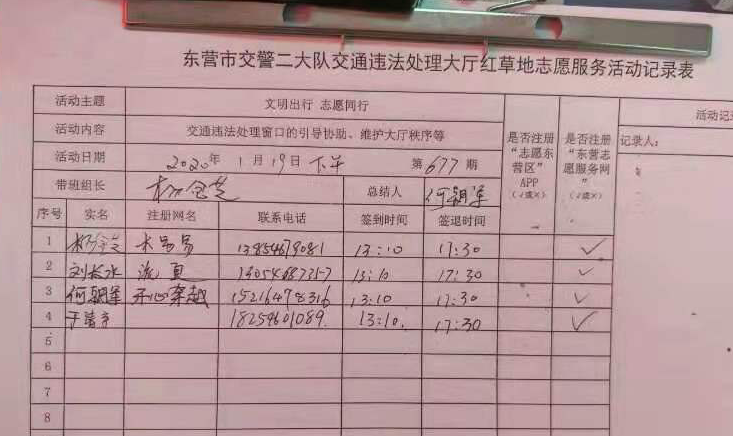 东营市交警二大队交通违法处理大厅红草地志愿服务活动记录表
活动主题 文明出行 志愿同行
活动内容 交通违法处理窗口的引导协助、维护大厅秩序等
活动日期 2020年 1月19日下午 第677期
带班组长 总结人 何朝军
是否注册“志愿东营区”APP（√或×）
是否注册“东营志愿服务网”（√或×）
活动记
记录人：
序号 实名 注册网名 联系电话 签到时间 签退时间
1 13:10 17:30 √
2 刘长水 13:10 17:30 √
3 何朝军 开心穿越 15216478316 13:10 17:30 √
4 18254601089 13:10. 17:30 √
5
6
7
8